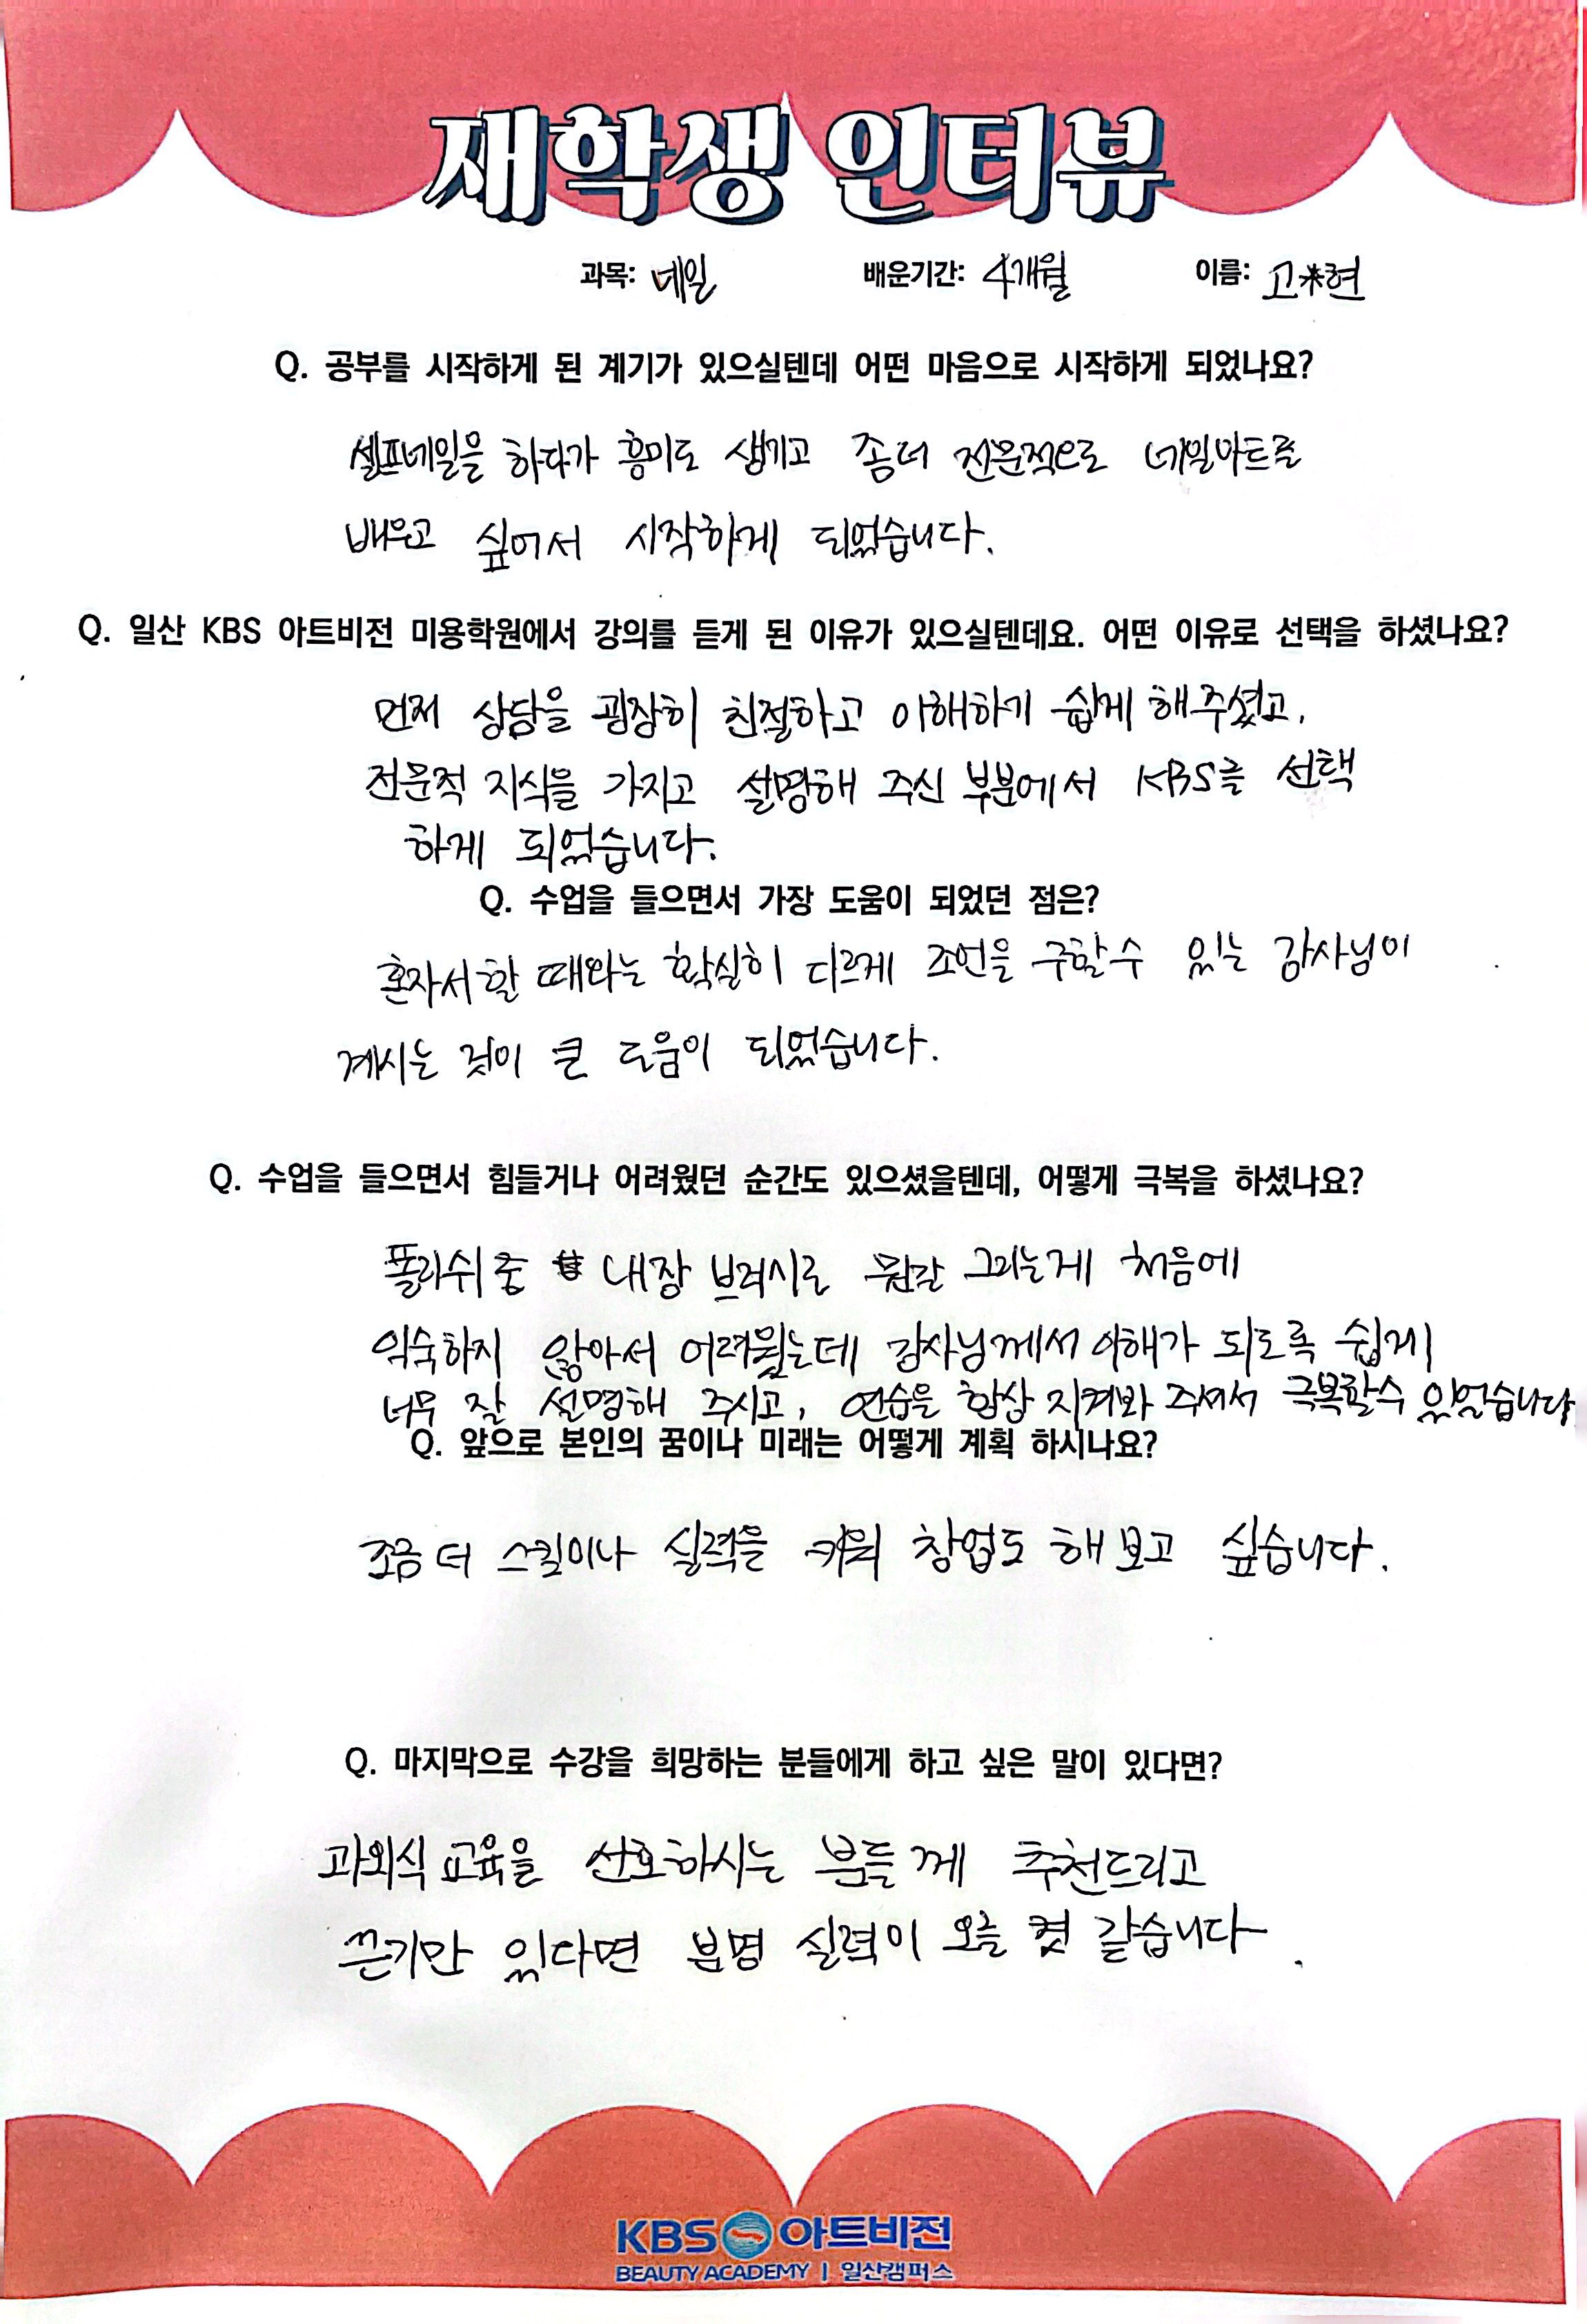 재학생 인터뷰
과목: 네일 배운기간: 4개월 이름: 고*현
Q. 공부를 시작하게 된 계기가 있으실텐데 어떤 마음으로 시작하게 되었나요?
셀프네일을 하다가 흥미도 생기고 좀더 전문적으로 네일아트를
배우고 싶어서 시작하게 되었습니다.
Q. 일산 KBS 아트비전 미용학원에서 강의를 듣게 된 이유가 있으실텐데요. 어떤 이유로 선택을 하셨나요?
먼저 상담을 굉장히 친절하고 이해하기 쉽게 해주셨고,
전문적 지식을 가지고 설명해 주신 부분에서 KBS를 선택
하게 되었습니다.
Q. 수업을 들으면서 가장 도움이 되었던 점은?
혼자서할 때와는 확실히 다르게 조언을 구할수 있는 강사님이
계시는 것이 큰 도움이 되었습니다.
Q. 수업을 들으면서 힘들거나 어려웠던 순간도 있으셨을텐데, 어떻게 극복을 하셨나요?
폴리쉬 중 내장 브러시로 뭔갈 그리는게 처음에
익숙하지 않아서 어려웠는데 강사님께서 이해가 되도록 쉽게
너무 잘 설명해 주시고, 연습을 항상 지켜봐 주셔서 극복할수 있었습니다
Q. 앞으로 본인의 꿈이나 미래는 어떻게 계획 하시나요?
조금 더 스킬이나 실력을 키워 창업도 해보고 싶습니다.
Q. 마지막으로 수강을 희망하는 분들에게 하고 싶은 말이 있다면?
과외식 교육을 선호하시는 분들께 추천드리고
끈기만 있다면 분명 실력이 오를 것 같습니다.
KBS 아트비전
BEAUTY ACADEMY | 일산캠퍼스